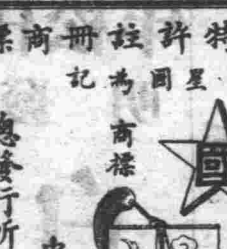 特許註冊商標
星圓為記
商標
總發行所